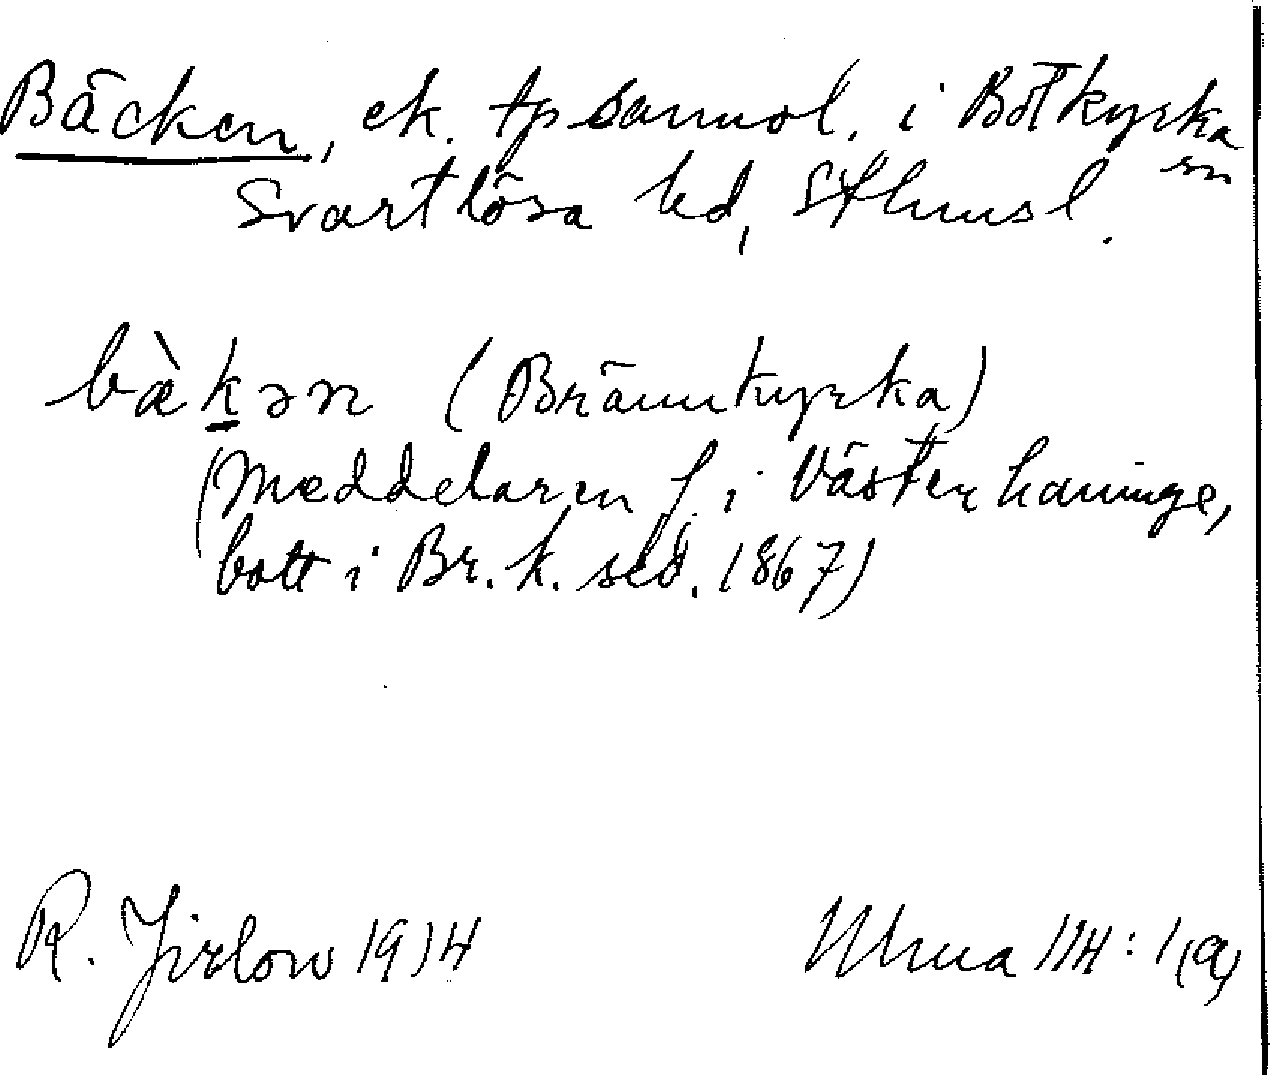 Bäcken, ek. tp sannol. i Botkyrka sn
Svartlösa hd, Sthlmsl.
bæ̀kən (Brännkyrka)
(Meddelaren f. i Västerhaninge,
bott i Br.k. sed. 1867)
R. Jirlow 1914 Ulma 114:1(a)